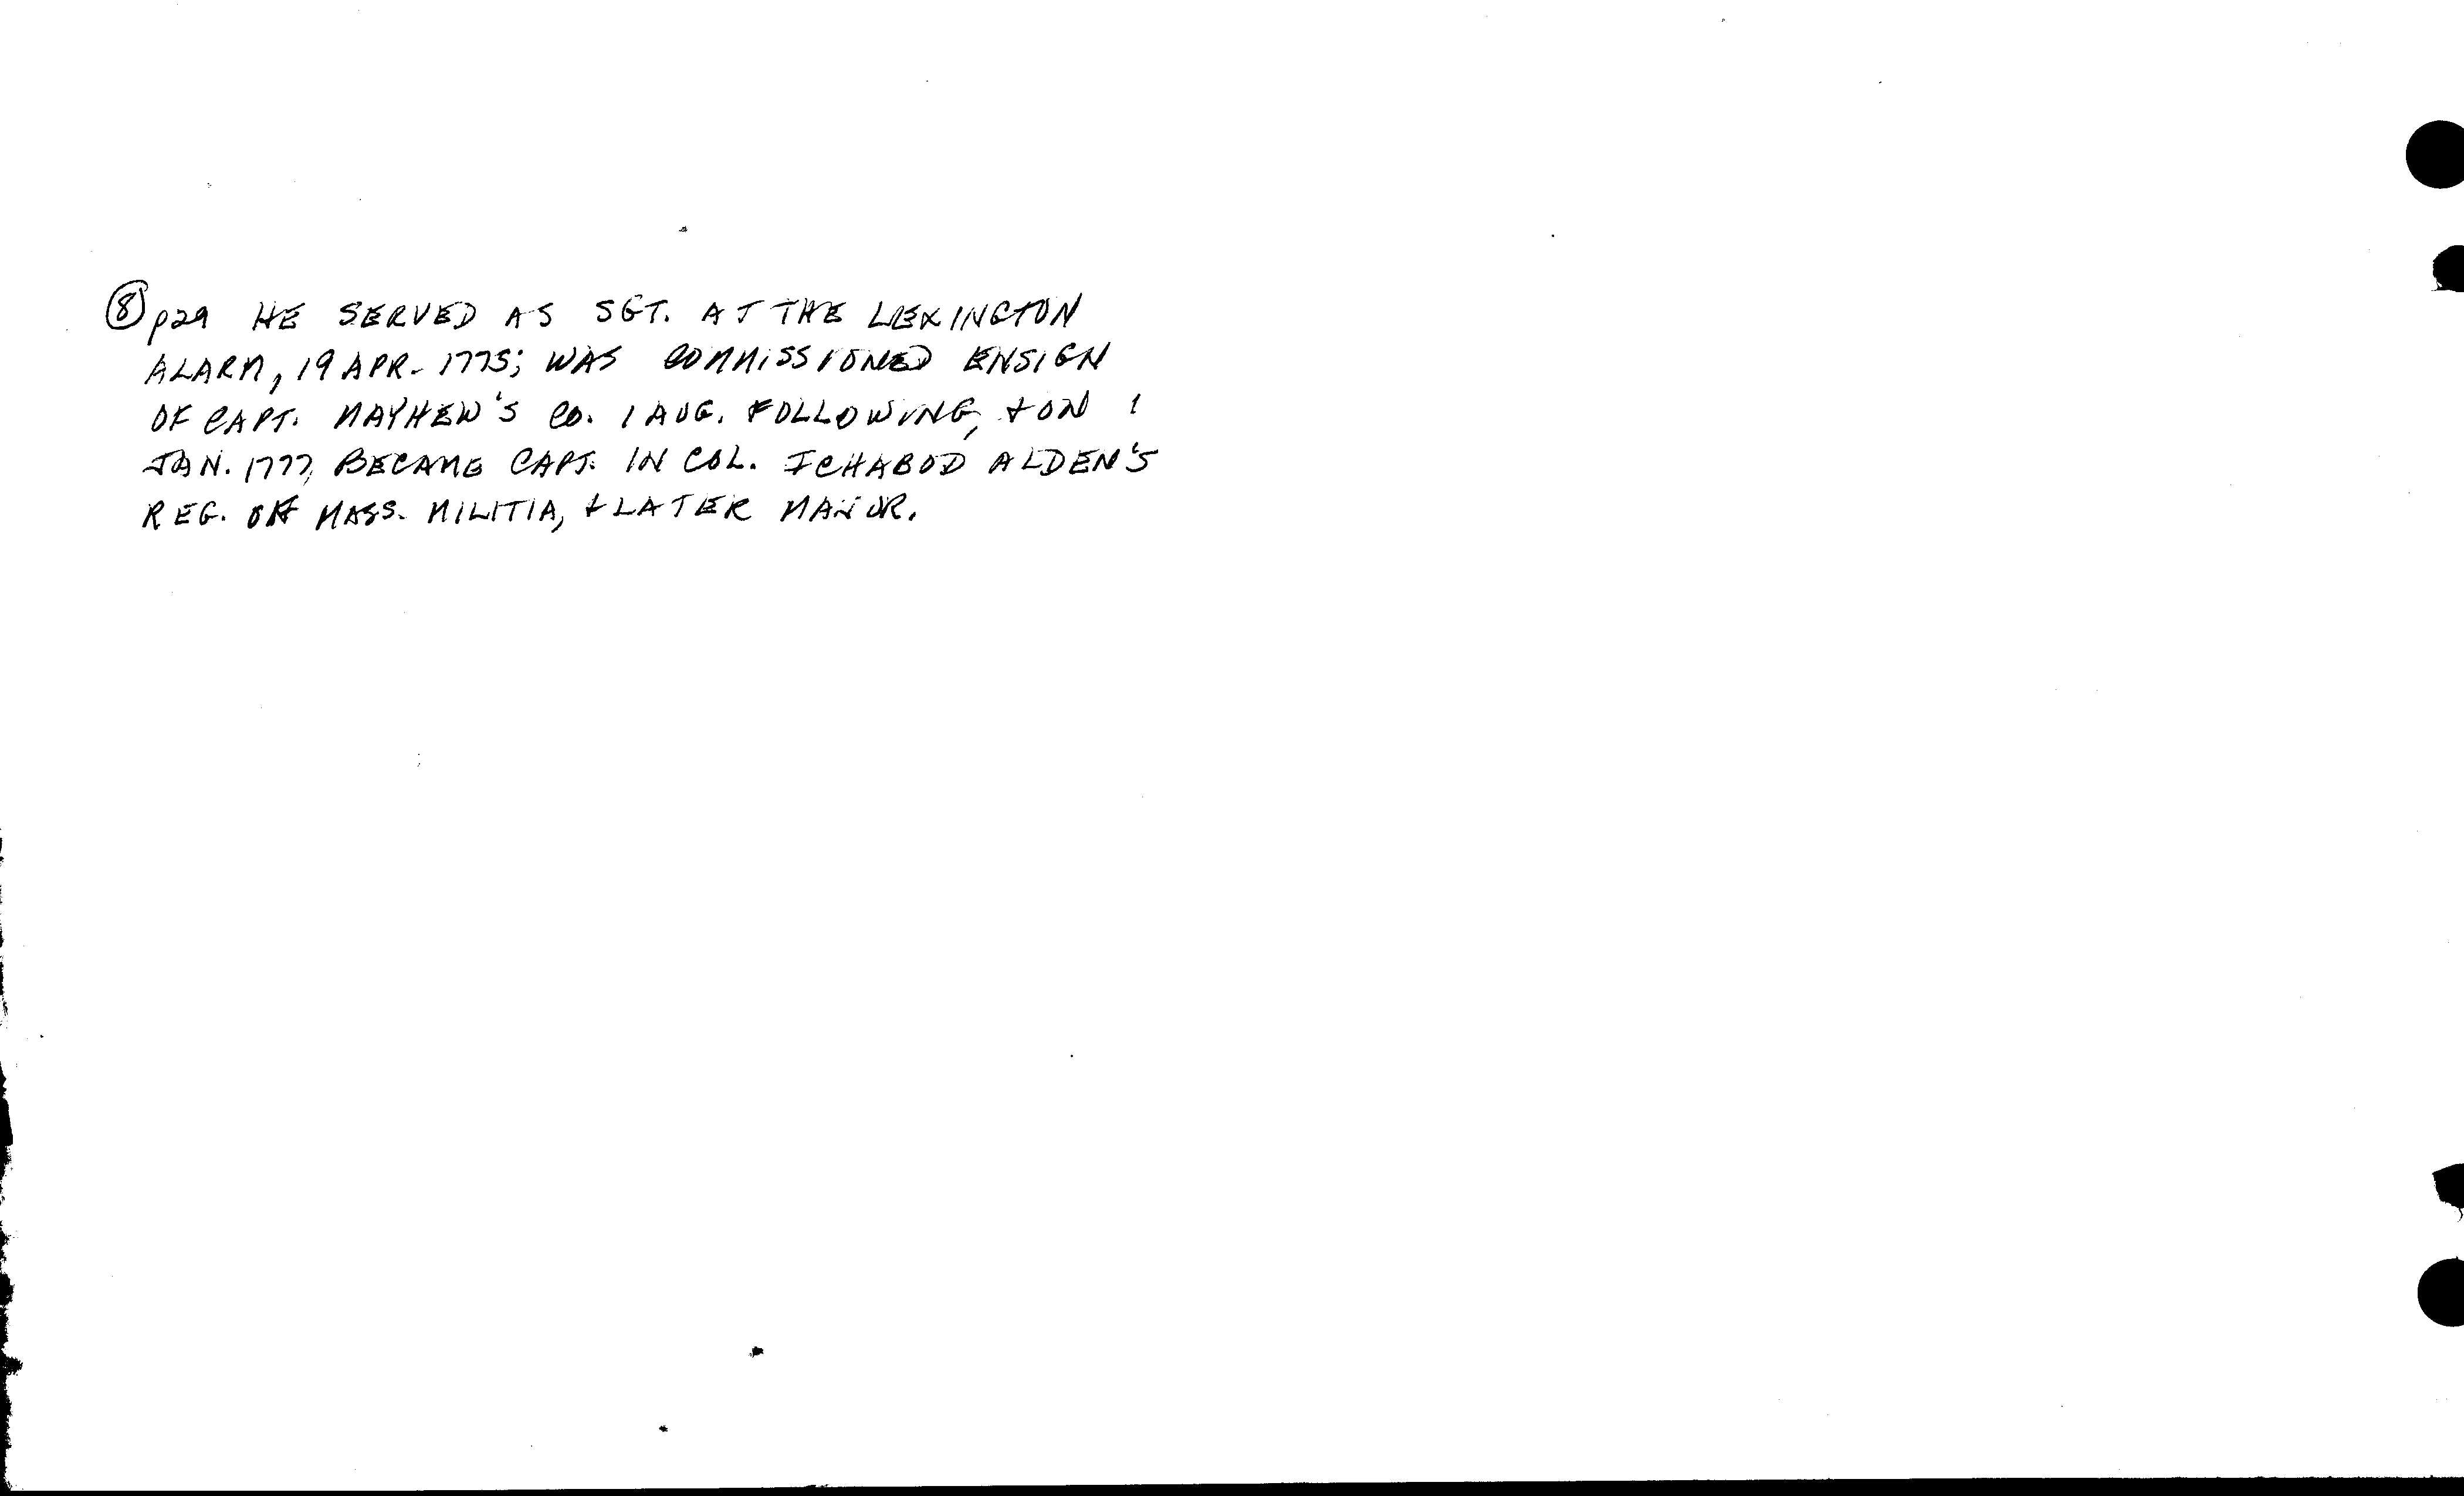 ⑧ p29 HE SERVED AS SGT. AT THE LEXINGTON
ALARM, 19 APR. 1775; WAS COMMISSIONED ENSIGN
OF CAPT. MAYHEW'S CO. 1 AUG. FOLLOWING, + ON 1
JAN. 1777, BECAME CAPT. IN COL. ICHABOD ALDEN'S
REG. OF MASS. MILITIA, + LATER MAJOR.